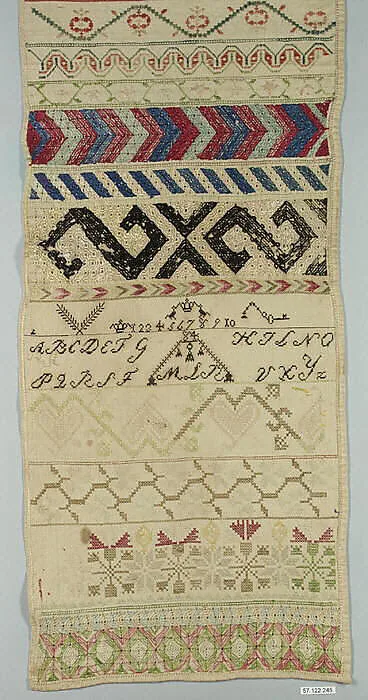 1 2 2 4 5 6 7 8 9 10
24
A B C D E F G H I L N O
P Q R S T M L R V X Y Z
57.122.245